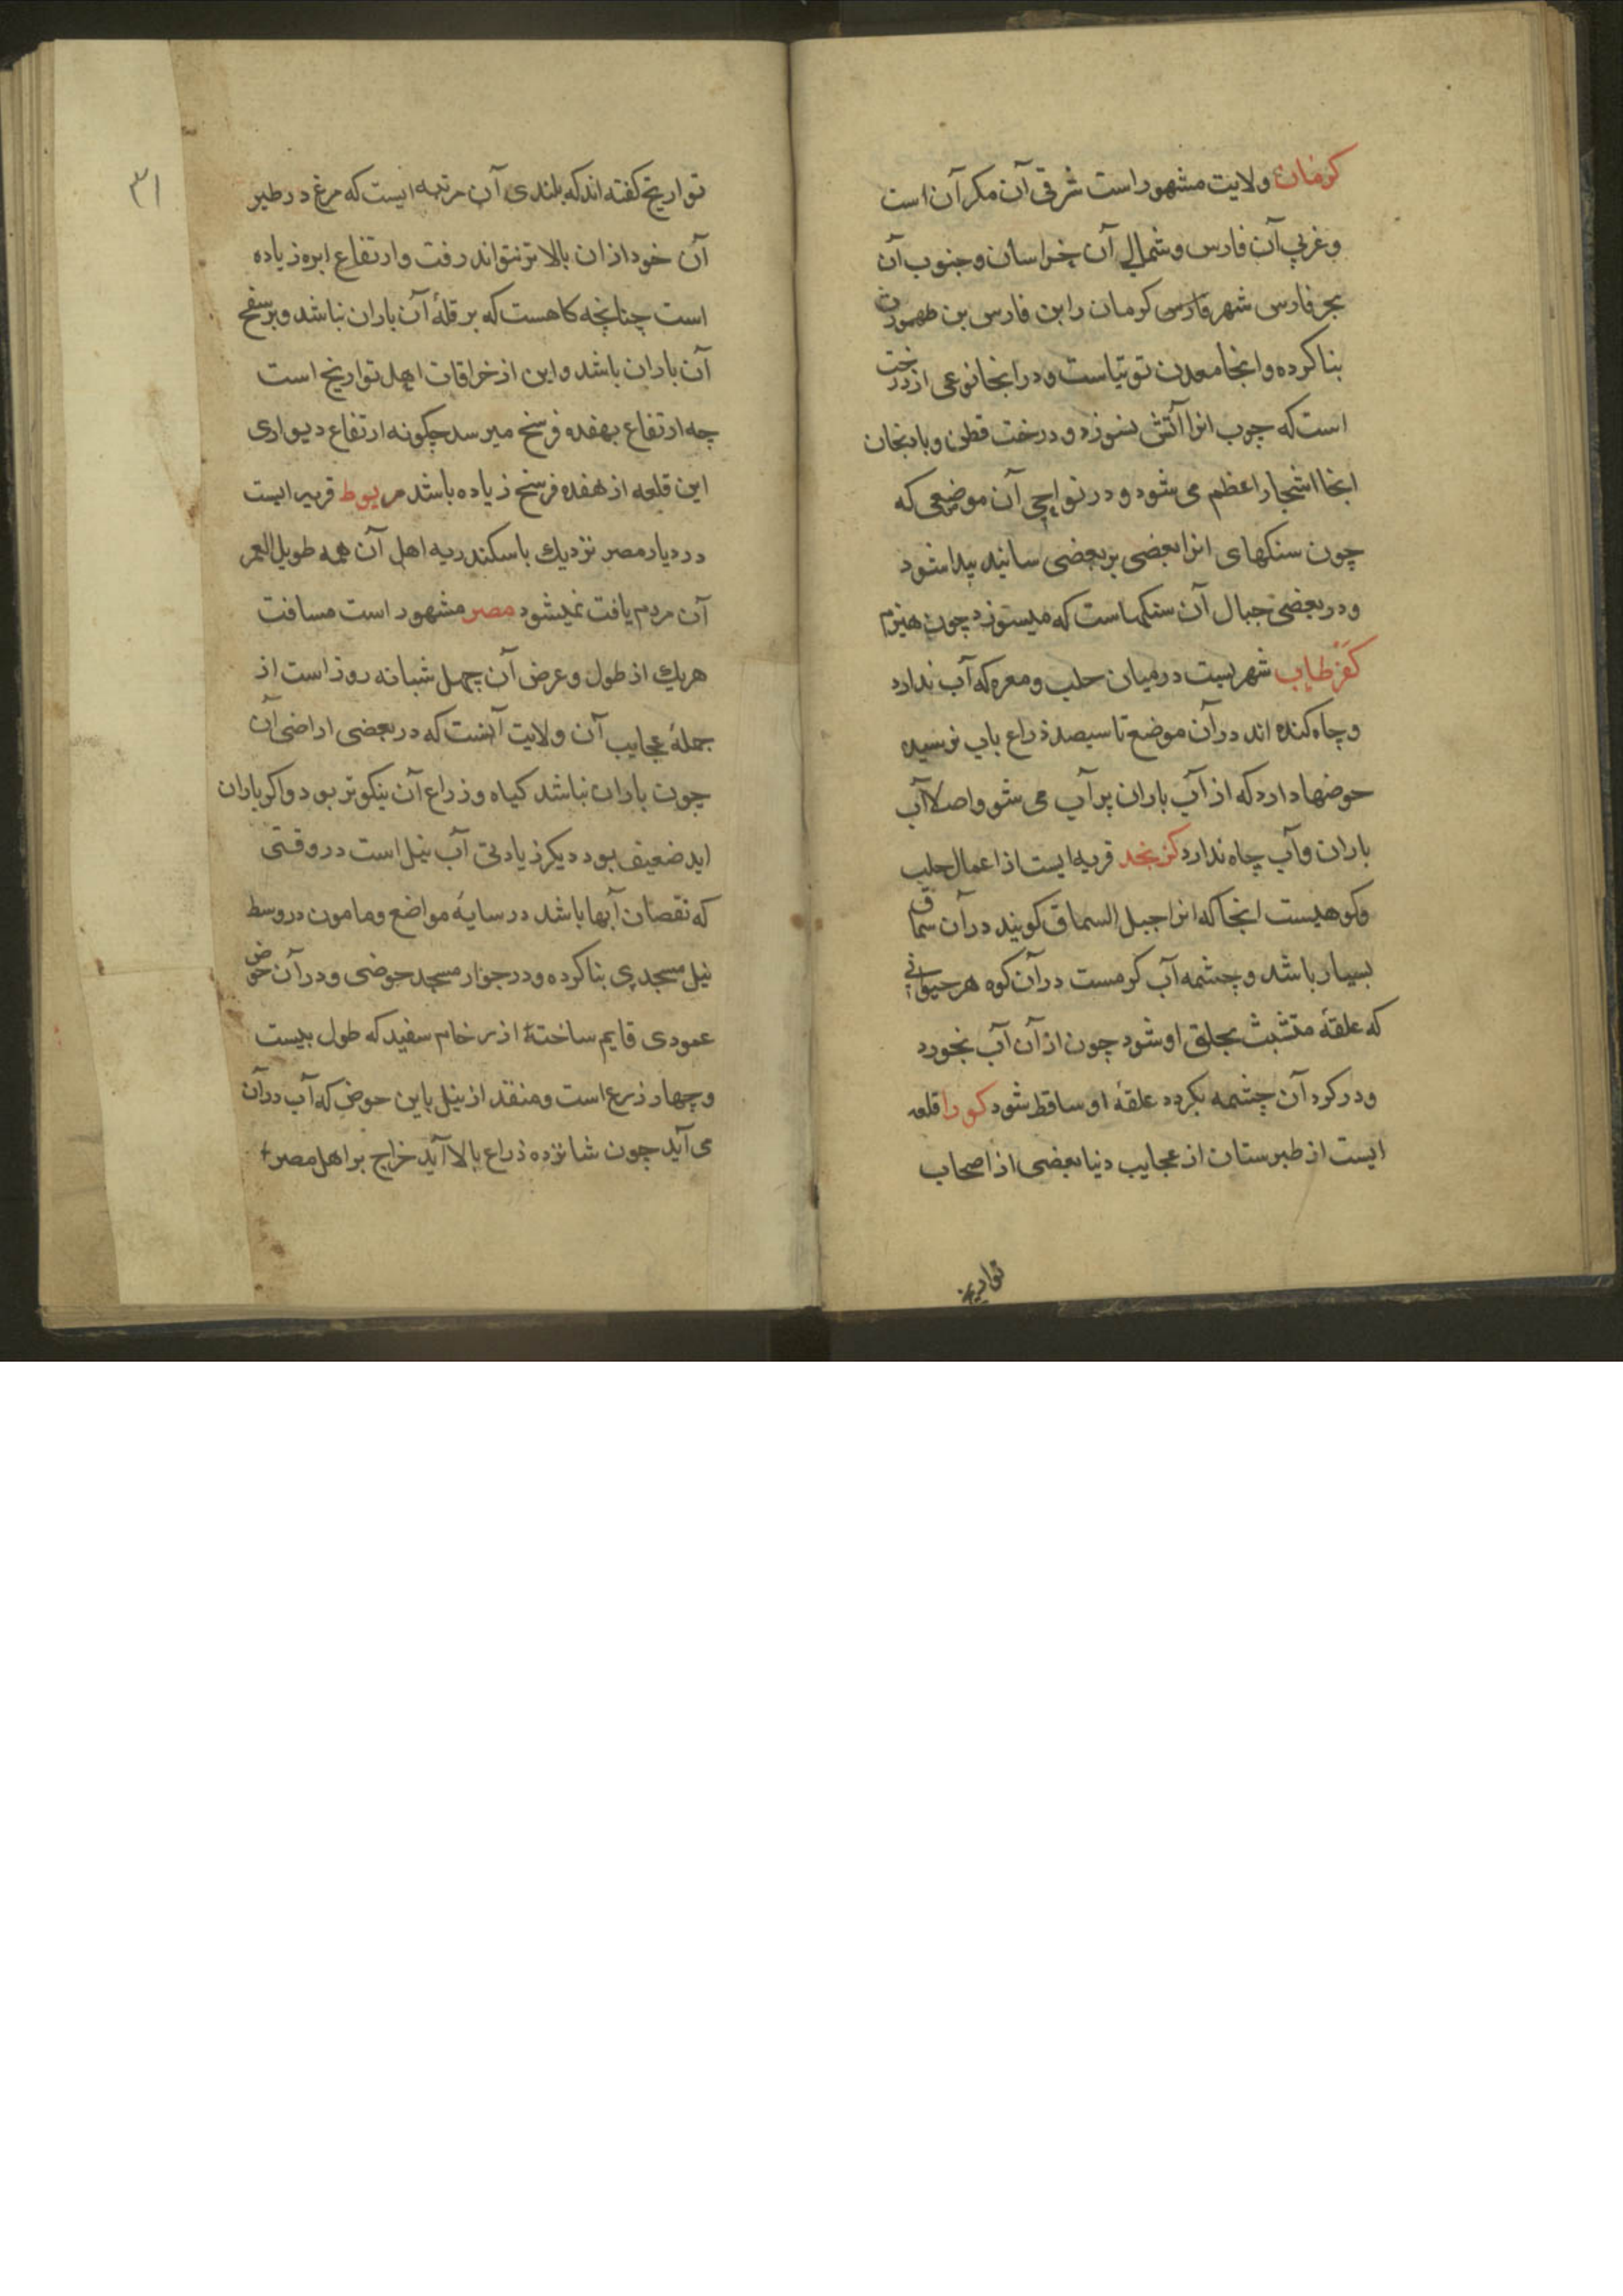 کرمان ولایت مشهور است شرقی آن مکران است
و غربی آن فارس و شمالی آن خراسان و جنوب آن
بحر فارس شهر فارس کرمان را بن فارس بن طهمورث
بنا کرده و انجا معدن توتیاست و در انجا نوعی از درخت
است که چوب انرا آتش نسوزد و درخت قطن و بادنجان
انجا اشجار اعظم می شود و در نواحی آن موضعی که
چون سنکهای انرا بعضی بر بعضی سانید پیدا شود
و در بعضی جبال آن سنکهاست که میسوزد چون هیزم
کفرطاب شهریست در میان حلب و معره که آب ندارد
و چاه کنده اند در آن موضع تا سیصد ذراع باب نرسیده
حوضها دارد که از آب باران پر آب می شو و اصلا آب
باران و آب چاه ندارد کز نجد قریه ایست از اعمال حلب
و کوهیست انجا که انرا جبل السماق کویند در آن سماق
بسیار باشد و چشمه آب کرمست در آن کوه هر حیوانی
که علقهٔ متشبث بحلق او شود چون از آن آب بخورد
و در کرد آن چشمه بکردد علقهٔ او ساقط شود کورا قلعه
ایست از طبرستان از عجایب دنیا بعضی از اصحاب
تواریخ
۳۱
تواریخ کفته اند که بلندی آن مرتبه ایست که مرغ در طیر
آن خود ازان بالاتر نتواند رفت و ارتفاع ابره زیاده
است چنانچه کاهست که بر قلهٔ آن باران نباشد و بر سفح
آن باران باشد و این از خرافات اهل تواریخ است
چه ارتفاع بهفده فرسخ میرسد چکونه ارتفاع دیواری
این قلعه از هفده فرسخ زیاده باشد مریوط قریه ایست
در دیار مصر نزدیك باسکندریه اهل آن همه طویل العمر
آن مردم یافت نمیشود مصر مشهور است مسافت
هریك از طول و عرض آن چهل شبانه روز است از
جملهٔ عجایب آن ولایت آنست که در بعضی اراضی آن
چون باران نباشد کیاه و زراع آن نیکوتر بود و اکر باران
اید ضعیف بود دیکر زیادتی آب نیل است در وقتی
که نقصان آبها باشد در سایهٔ مواضع و مامون در وسط
نیل مسجدی بنا کرده و در جوار مسجد حوضی و در آن حوض
عمودی قایم ساختهٔ از رخام سفید که طول بیست
و چهار ذرع است و منفد از نیل باین حوض که آب در آن
می آید چون شانزده ذراع بالا آید خراج بر اهل مصر